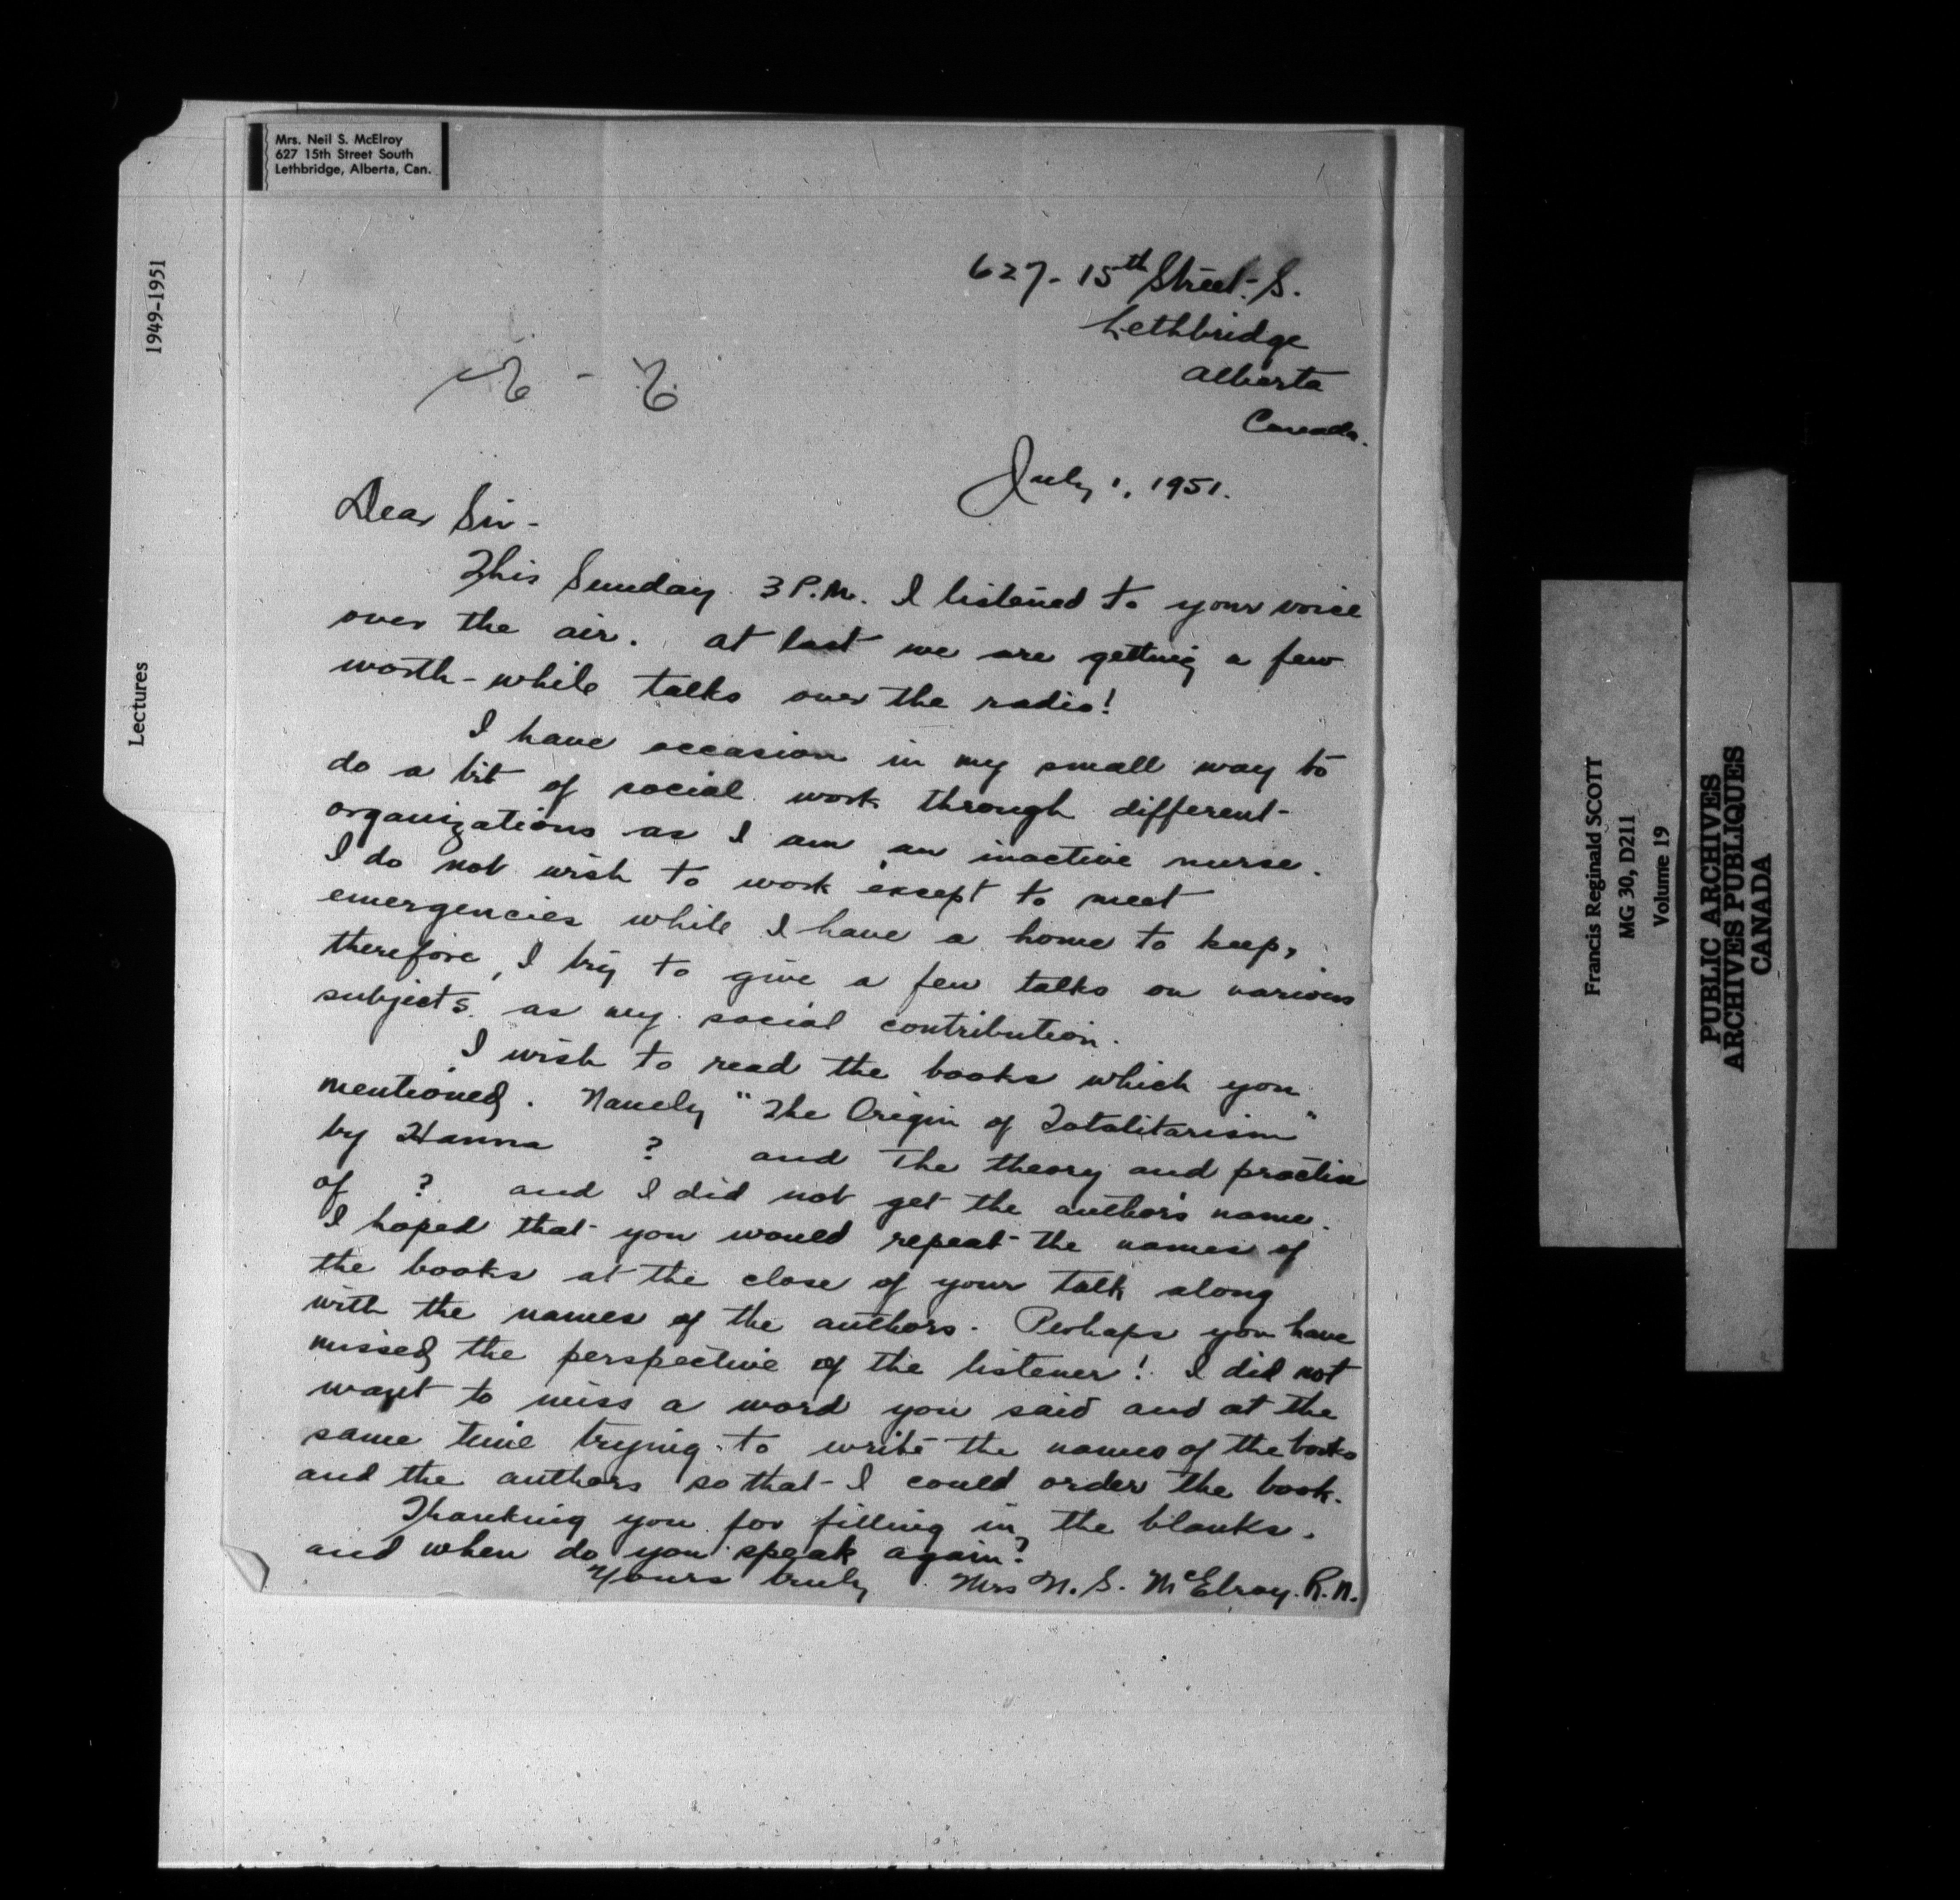 Mrs. Neil S. McElroy
627 15th Street South
Lethbridge, Alberta, Can.
627 - 15th Street - S.
Lethbridge
Alberta
Canada.
July 1, 1951.
Dear Sir -
This Sunday 3 P.M. I listened to your voice
over the air. At last we are getting a few
worth-while talks over the radio!
I have occasion in my small way to
do a bit of social work through different
organizations as I am an inactive nurse.
I do not wish to work except to meet
emergencies while I have a home to keep,
therefore, I try to give a few talks on various
subjects as my social contribution.
I wish to read the books which you
mentioned. Namely "The Origin of Totalitarism"
by Hanna ? and The theory and practise
of ? and I did not get the author's name.
I hoped that you would repeat the names of
the books at the close of your talk along
with the names of the authors. Perhaps you have
missed the perspective of the listener! I did not
want to miss a word you said and at the
same time trying to write the names of the books
and the authors so that I could order the book.
Thanking you for filling in the blanks.
and when do you speak again?
Yours truly Mrs N. S. McElroy. R.N.
1949-1951
Lectures
Francis Reginald SCOTT
MG 30, D211
Volume 19
PUBLIC ARCHIVES
ARCHIVES PUBLIQUES
CANADA